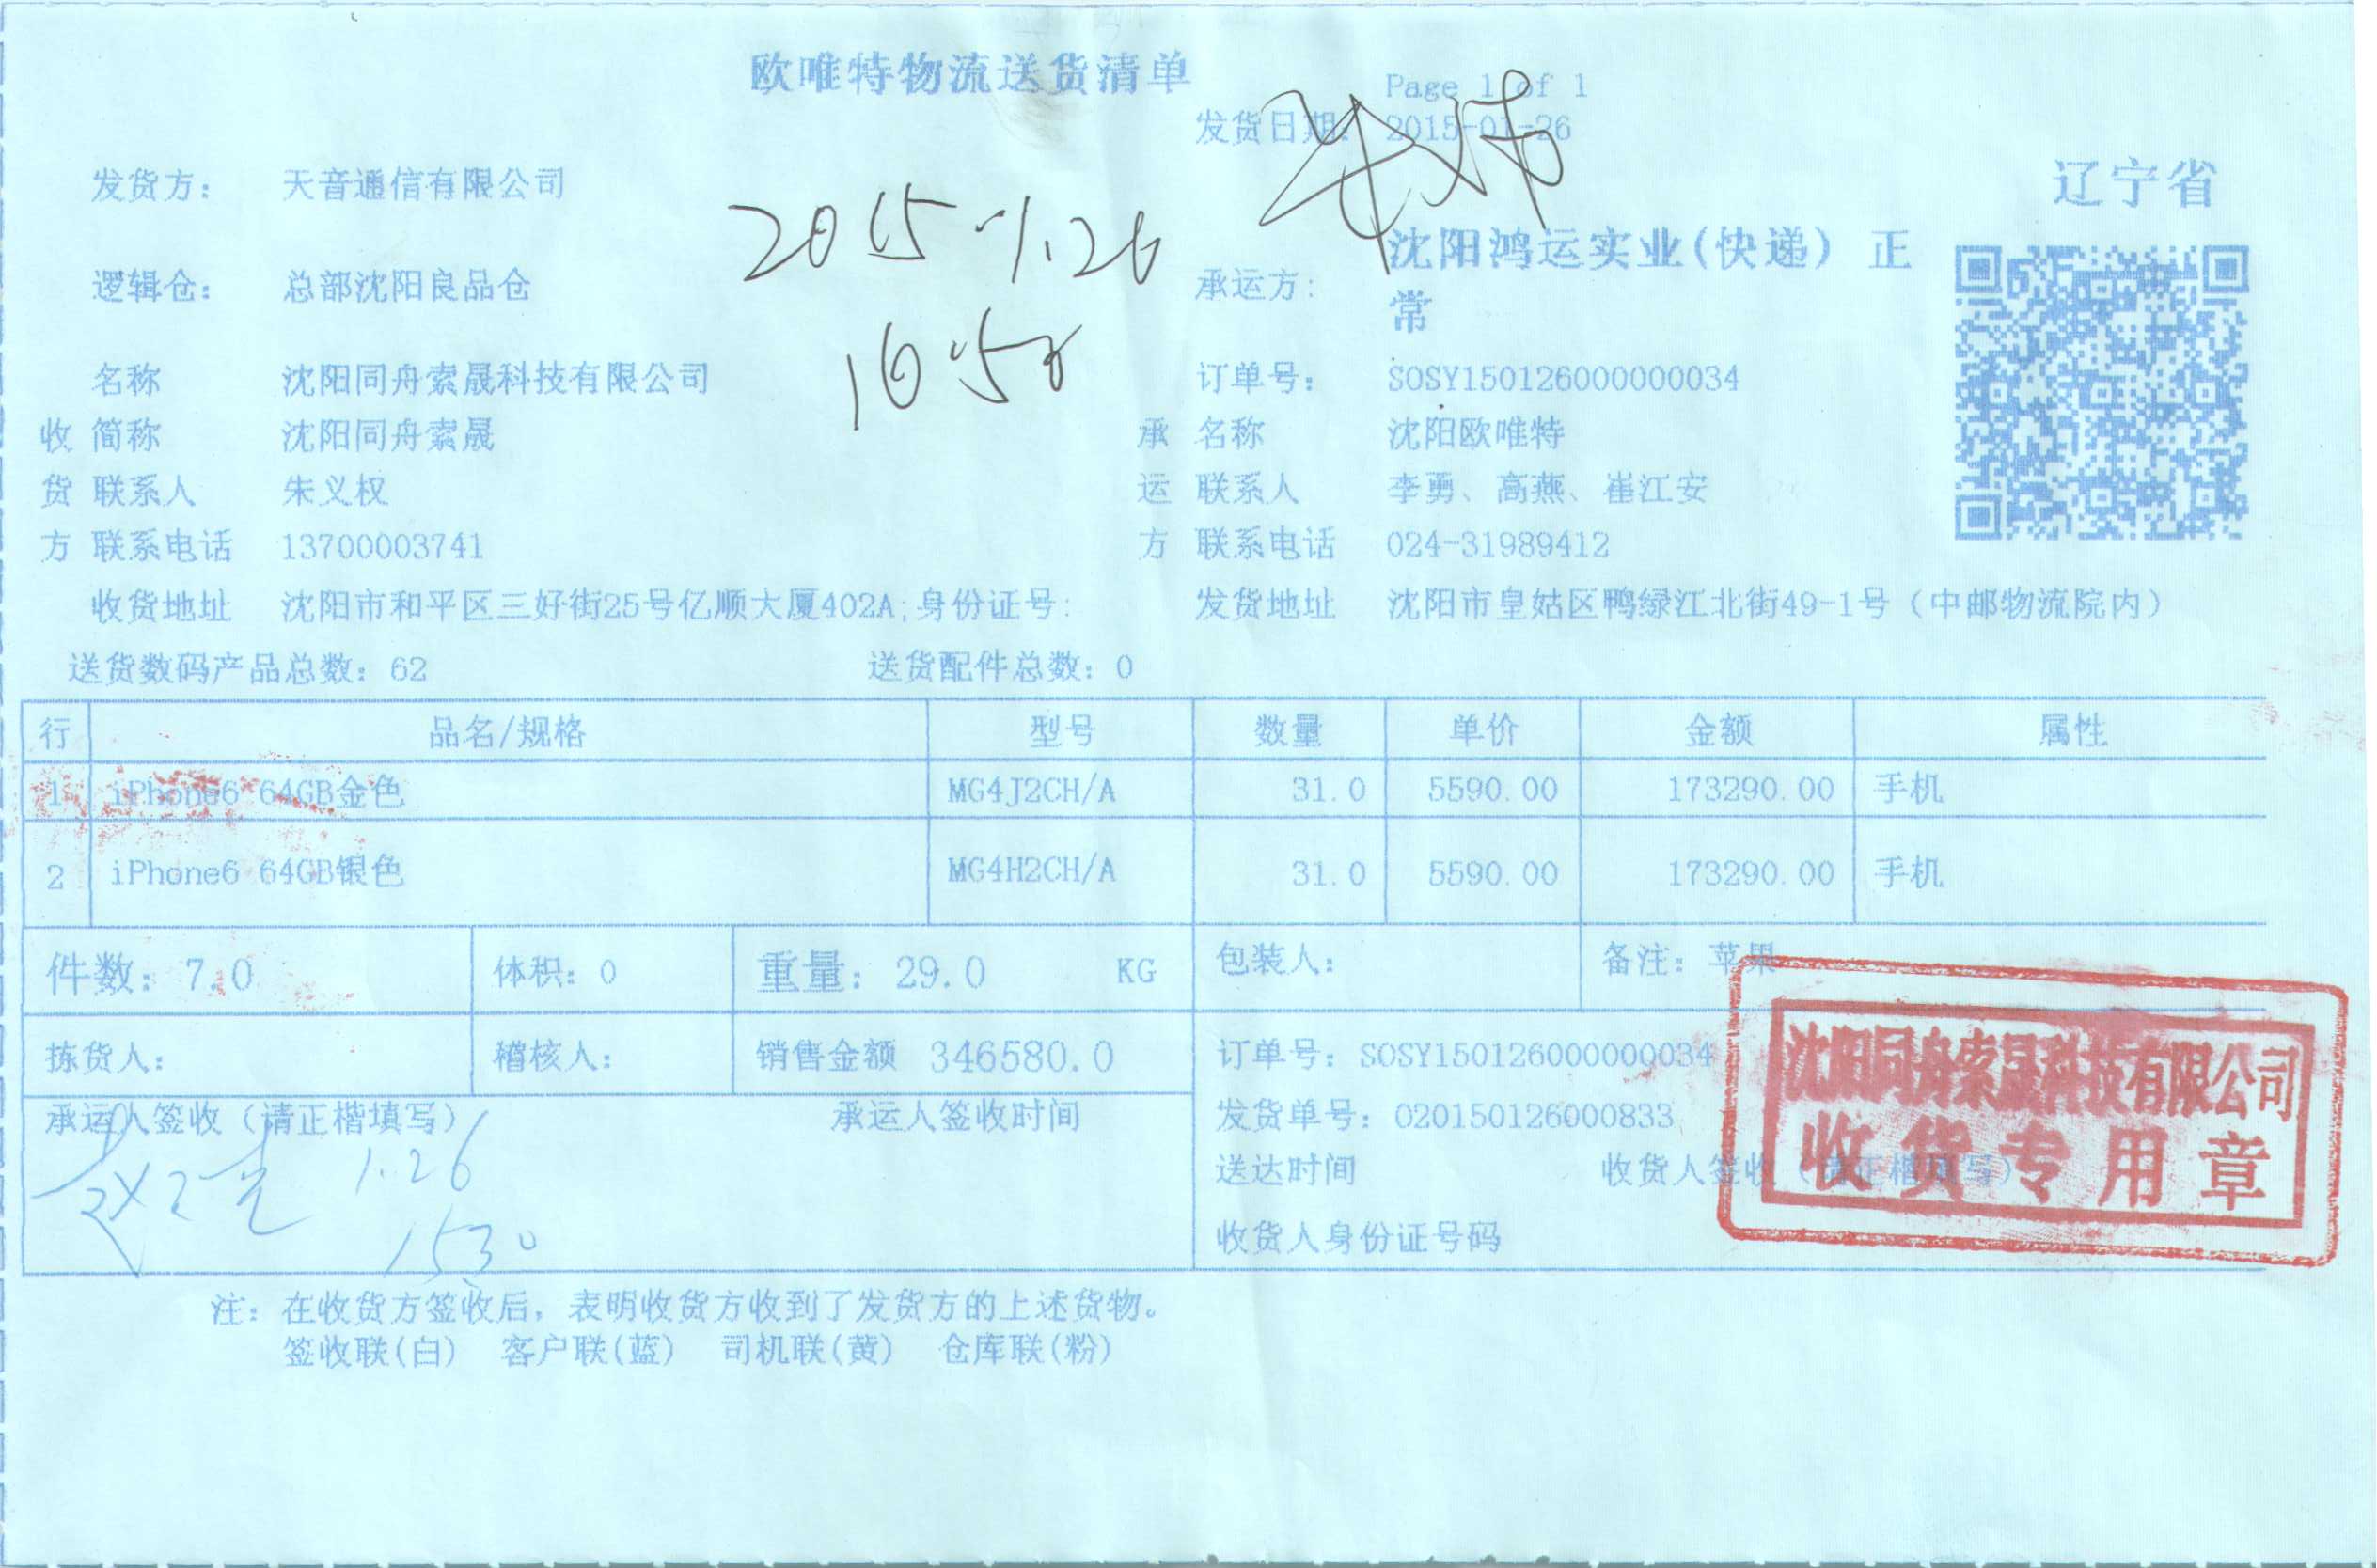 欧唯特物流送货清单
Page 1 of 1
发货日期: 2015-01-26
发货方: 天音通信有限公司
辽宁省
2015.1.26
逻辑仓: 总部沈阳良品仓
承运方: 沈阳鸿运实业(快递) 正常
16:50
名称 沈阳同舟索晟科技有限公司
订单号: SOSY150126000000034
收 简称 沈阳同舟索晟
承 名称 沈阳欧唯特
货 联系人 朱义权
运 联系人 李勇、高燕、崔江安
方 联系电话 13700003741
方 联系电话 024-31989412
收货地址 沈阳市和平区三好街25号亿顺大厦402A;身份证号:
发货地址 沈阳市皇姑区鸭绿江北街49-1号（中邮物流院内）
送货数码产品总数: 62 送货配件总数: 0
行 品名/规格 型号 数量 单价 金额 属性
1 iPhone6 64GB金色 MG4J2CH/A 31.0 5590.00 173290.00 手机
2 iPhone6 64GB银色 MG4H2CH/A 31.0 5590.00 173290.00 手机
件数: 7.0 体积: 0 重量: 29.0 KG 包装人: 备注: 苹果
拣货人: 稽核人: 销售金额 346580.0 订单号: SOSY150126000000034
承运人签收（请正楷填写） 承运人签收时间
1.26
1530
发货单号: 020150126000833
送达时间 收货人签收（请正楷填写）
收货人身份证号码
沈阳同舟索晟科技有限公司
收货专用章
注: 在收货方签收后, 表明收货方收到了发货方的上述货物。
签收联(白) 客户联(蓝) 司机联(黄) 仓库联(粉)